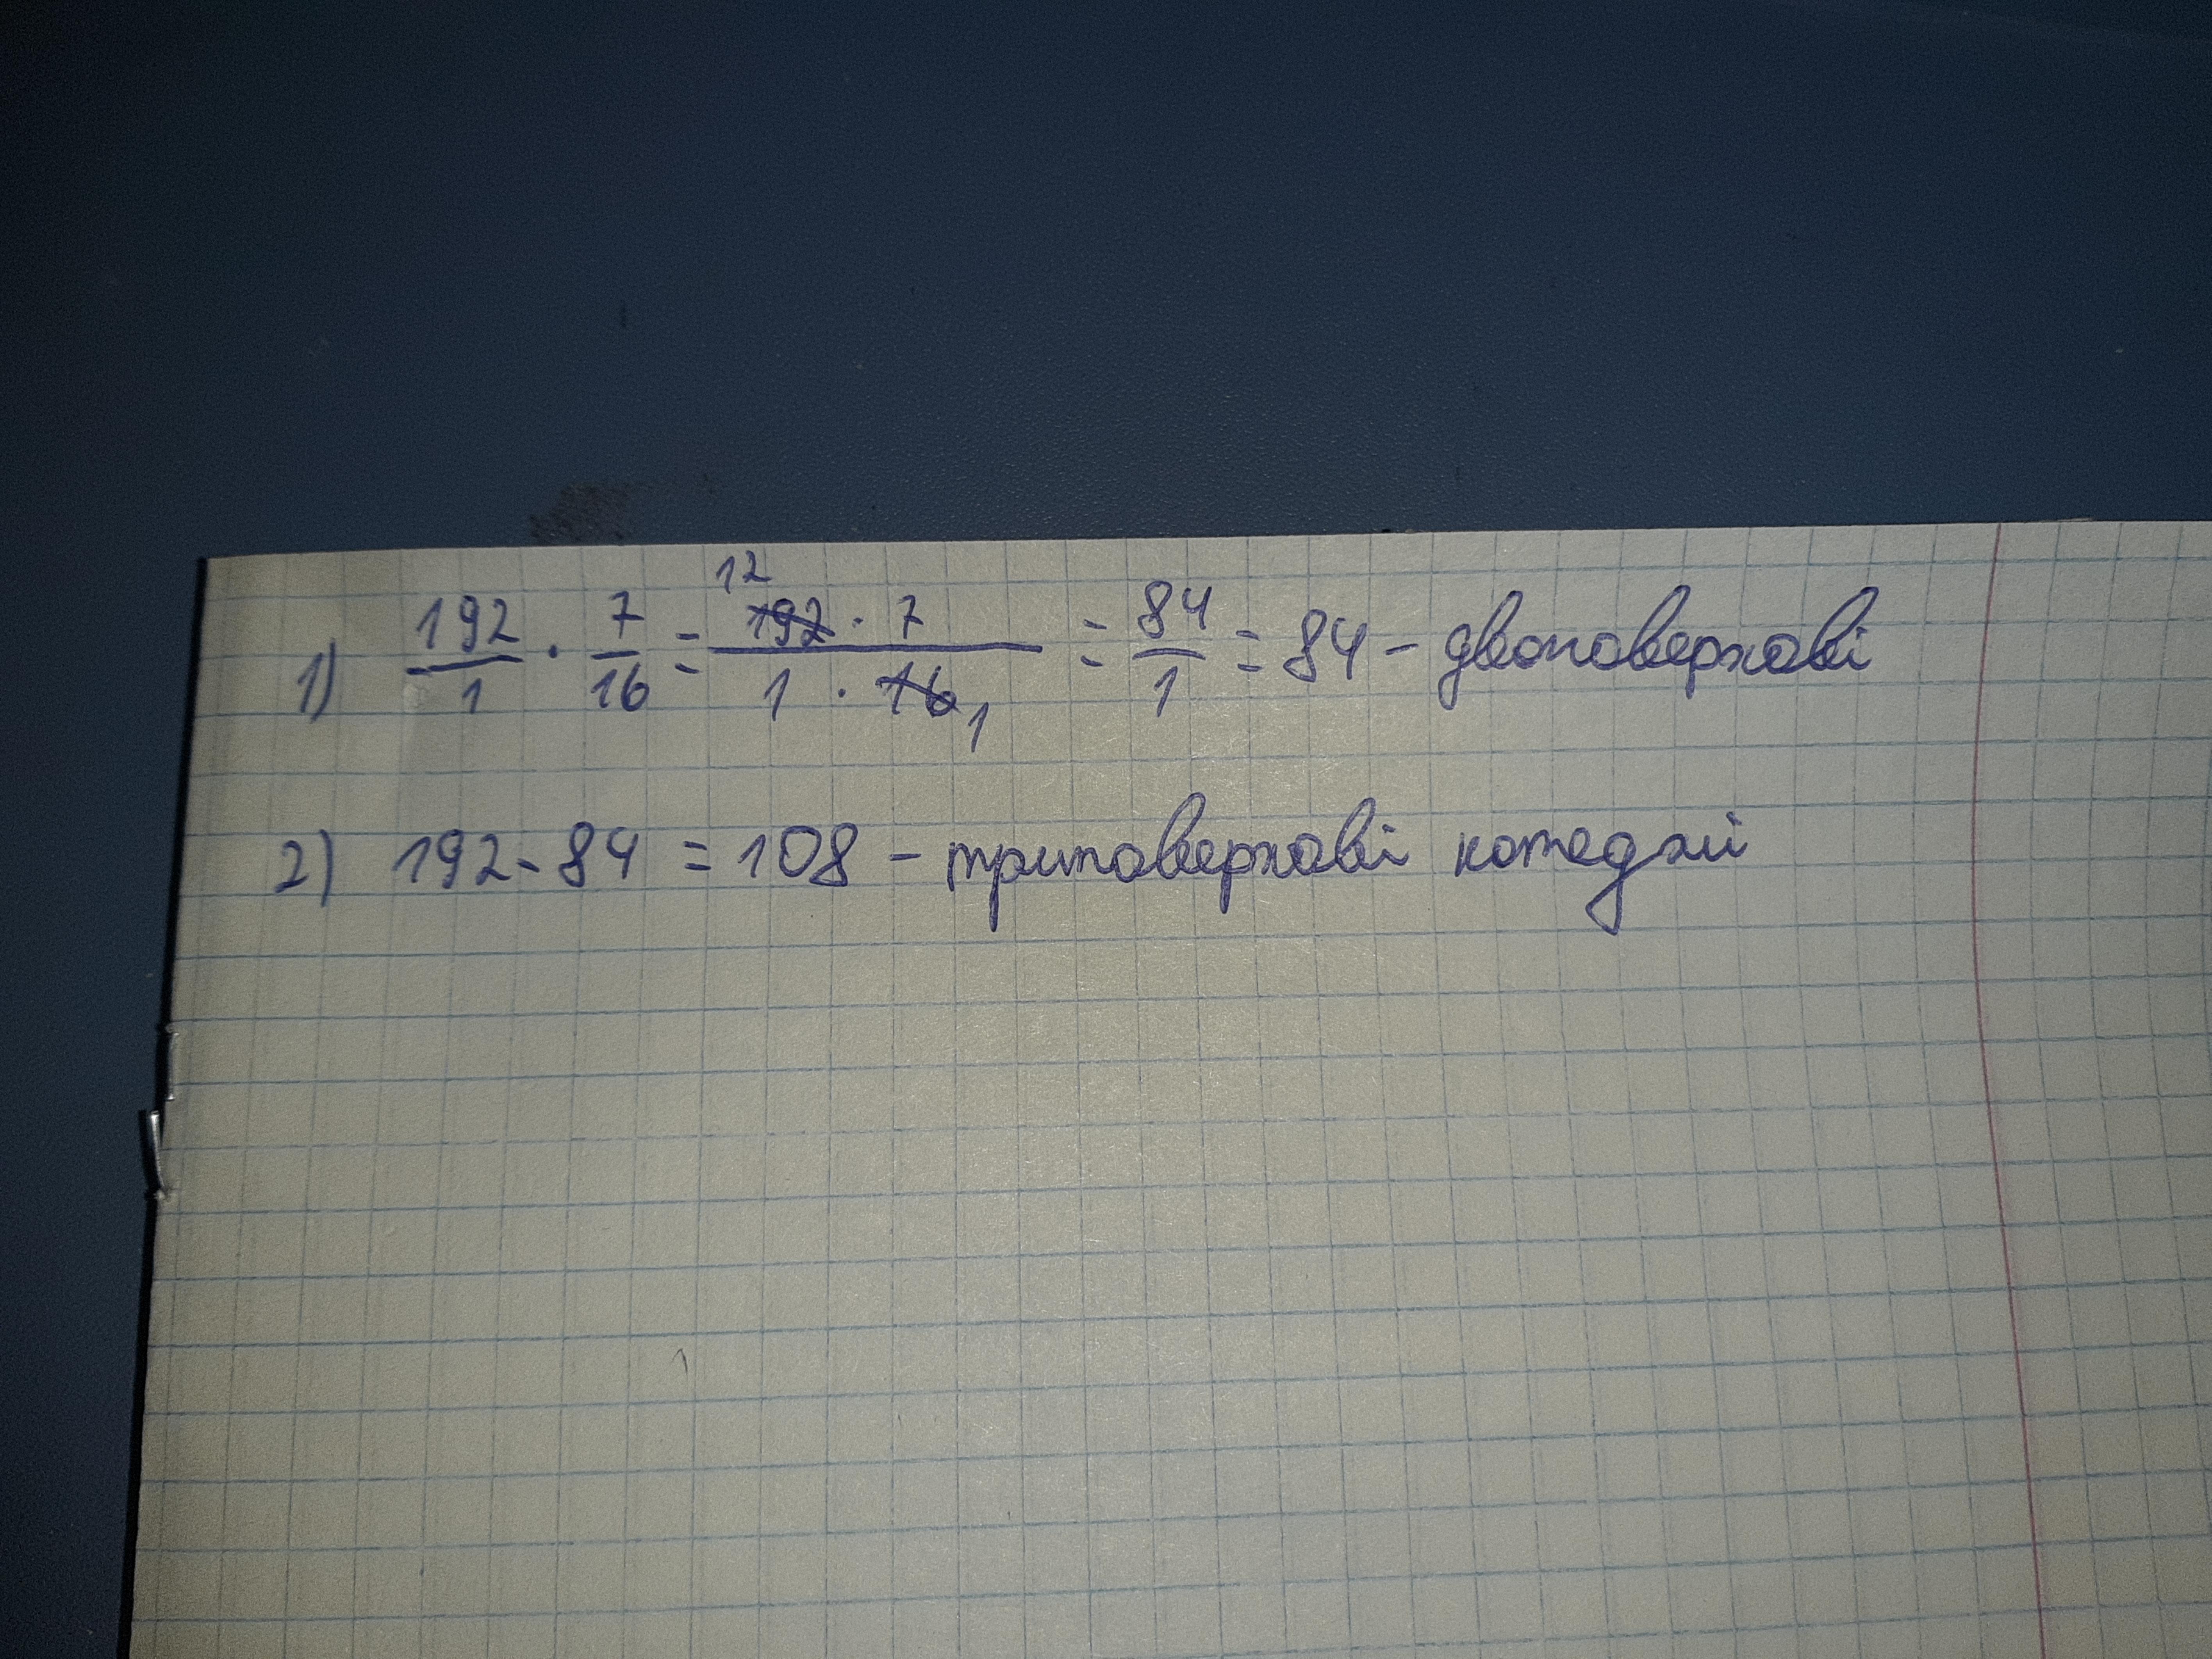 1) 192/1 · 7/16 = 12 192 · 7 / 1 · 16 1 = 84/1 = 84 - двоповерхові
2) 192 - 84 = 108 - триповерхові котеджі